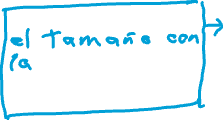 el tamaño con
la